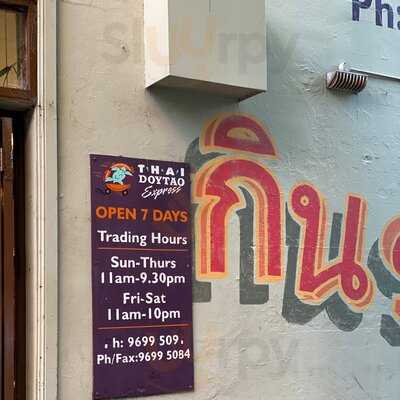 Ph
T·H·A·I
DOYTAO
Express
OPEN 7 DAYS
Trading Hours
Sun-Thurs
11am-9.30pm
Fri-Sat
11am-10pm
h: 9699 509
Ph/Fax:9699 5084
กิน